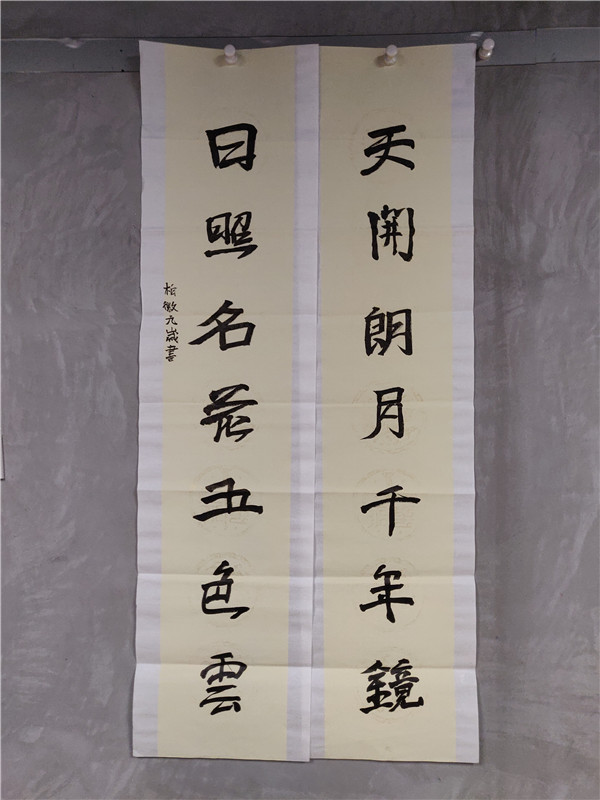 天開朗月千年鏡
日照名花五色雲
松徽九歲書